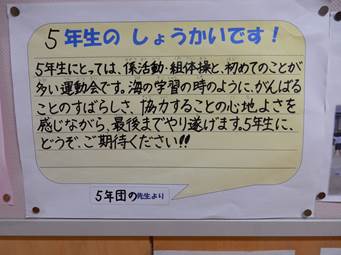 5年生の しょうかいです！
5年生にとっては、係活動・組体操と、初めてのことが
多い運動会です。海の学習の時のように、がんばる
ことのすばらしさ、協力することの心地よさを
感じながら、最後までやり遂げます。5年生に、
どうぞ、ご期待ください!!
5年団の先生より